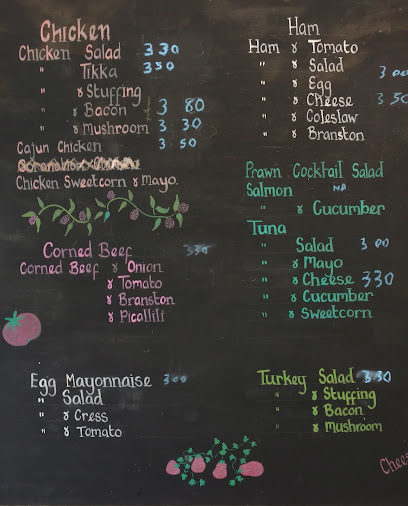 Chicken
Chicken Salad 3 30
" Tikka 3 50
" & Stuffing
" & Bacon 3 80
" & Mushroom 3 30
Cajun Chicken 3 50
Chicken Sweetcorn & Mayo.
Corned Beef 3 30
Corned Beef & Onion
& Tomato
& Branston
& Picallili
Egg Mayonnaise 3 00
" Salad
" & Cress
" & Tomato
Ham
Ham & Tomato
" & Salad 3 00
" & Egg
" & Cheese 3 50
" & Coleslaw
" & Branston
Prawn Cocktail Salad
Salmon NA
" & Cucumber
Tuna
" Salad 3 00
" & Mayo
" & Cheese 3 30
" & Cucumber
" & Sweetcorn
Turkey Salad 3 30
" & Stuffing
" & Bacon
" & Mushroom
Chees